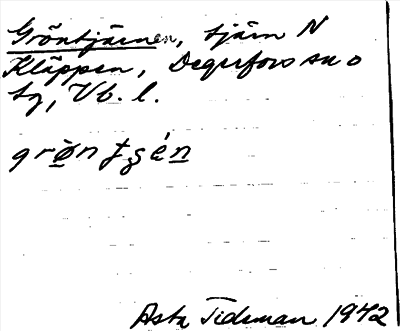 Gröntjärnen, tjärn N
Kläppen, Degerfors sn o
tg, Vb. l.
grø̀nʈʂén
Asta Tideman 1942